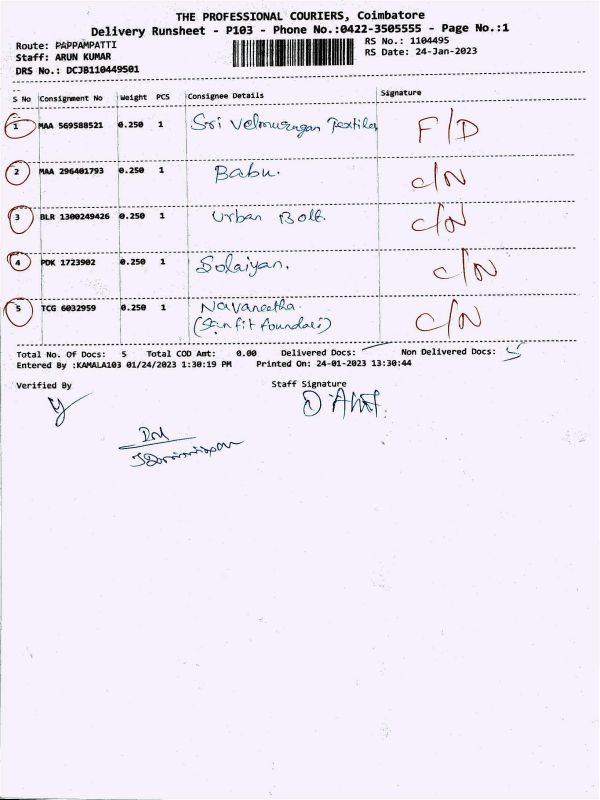 THE PROFESSIONAL COURIERS, Coimbatore
Delivery Runsheet - P103 - Phone No.:0422-3505555 - Page No.:1
Route: PAPPAMPATTI
RS No.: 1104495
Staff: ARUN KUMAR
RS Date: 24-Jan-2023
DRS No.: DCJB110449501
S No Consignment No Weight PCS Consignee Details Signature
1 MAA 569588521 0.250 1 Sri Velmurugan Textiles F/D
2 MAA 296401793 0.250 1 Babu. C/N
3 BLR 1300249426 0.250 1 Urban Bolt. C/N
4 PDK 1723902 0.250 1 Solaiyan. C/N
5 TCG 6032959 0.250 1 Navaneetha. C/N
(Sanfit foundari)
Total No. Of Docs: 5 Total COD Amt: 0.00 Delivered Docs: — Non Delivered Docs: 5
Entered By :KAMALA103 01/24/2023 1:30:19 PM Printed On: 24-01-2023 13:30:44
Verified By Staff Signature